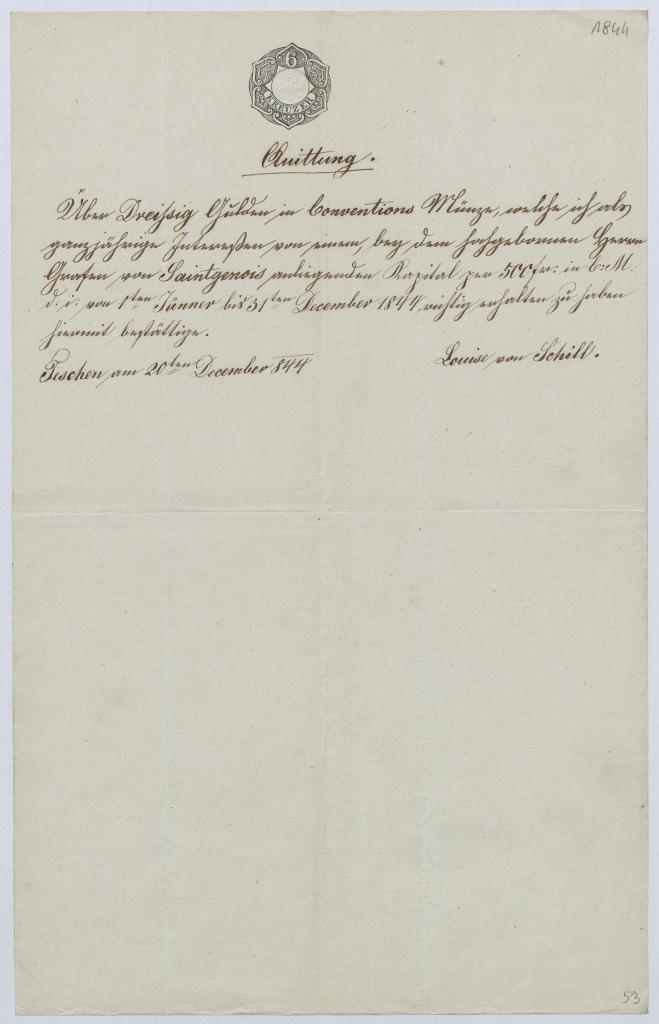 1844
6
KREUZER
Quittung.
Über Dreißig Gulden in Conventions Münze, welche ich als
ganzjährige Intereßen von einem, bey dem hochgebornen Herrn
Grafen von Saintgenois anliegenden Kapital per 500 fr: in C: M:
d: i: von 1ten Jänner bis 31ten December 1844, richtig erhalten zu haben
hiermit bestättige.
Teschen am 20ten December 844
Louise von Schill.
53